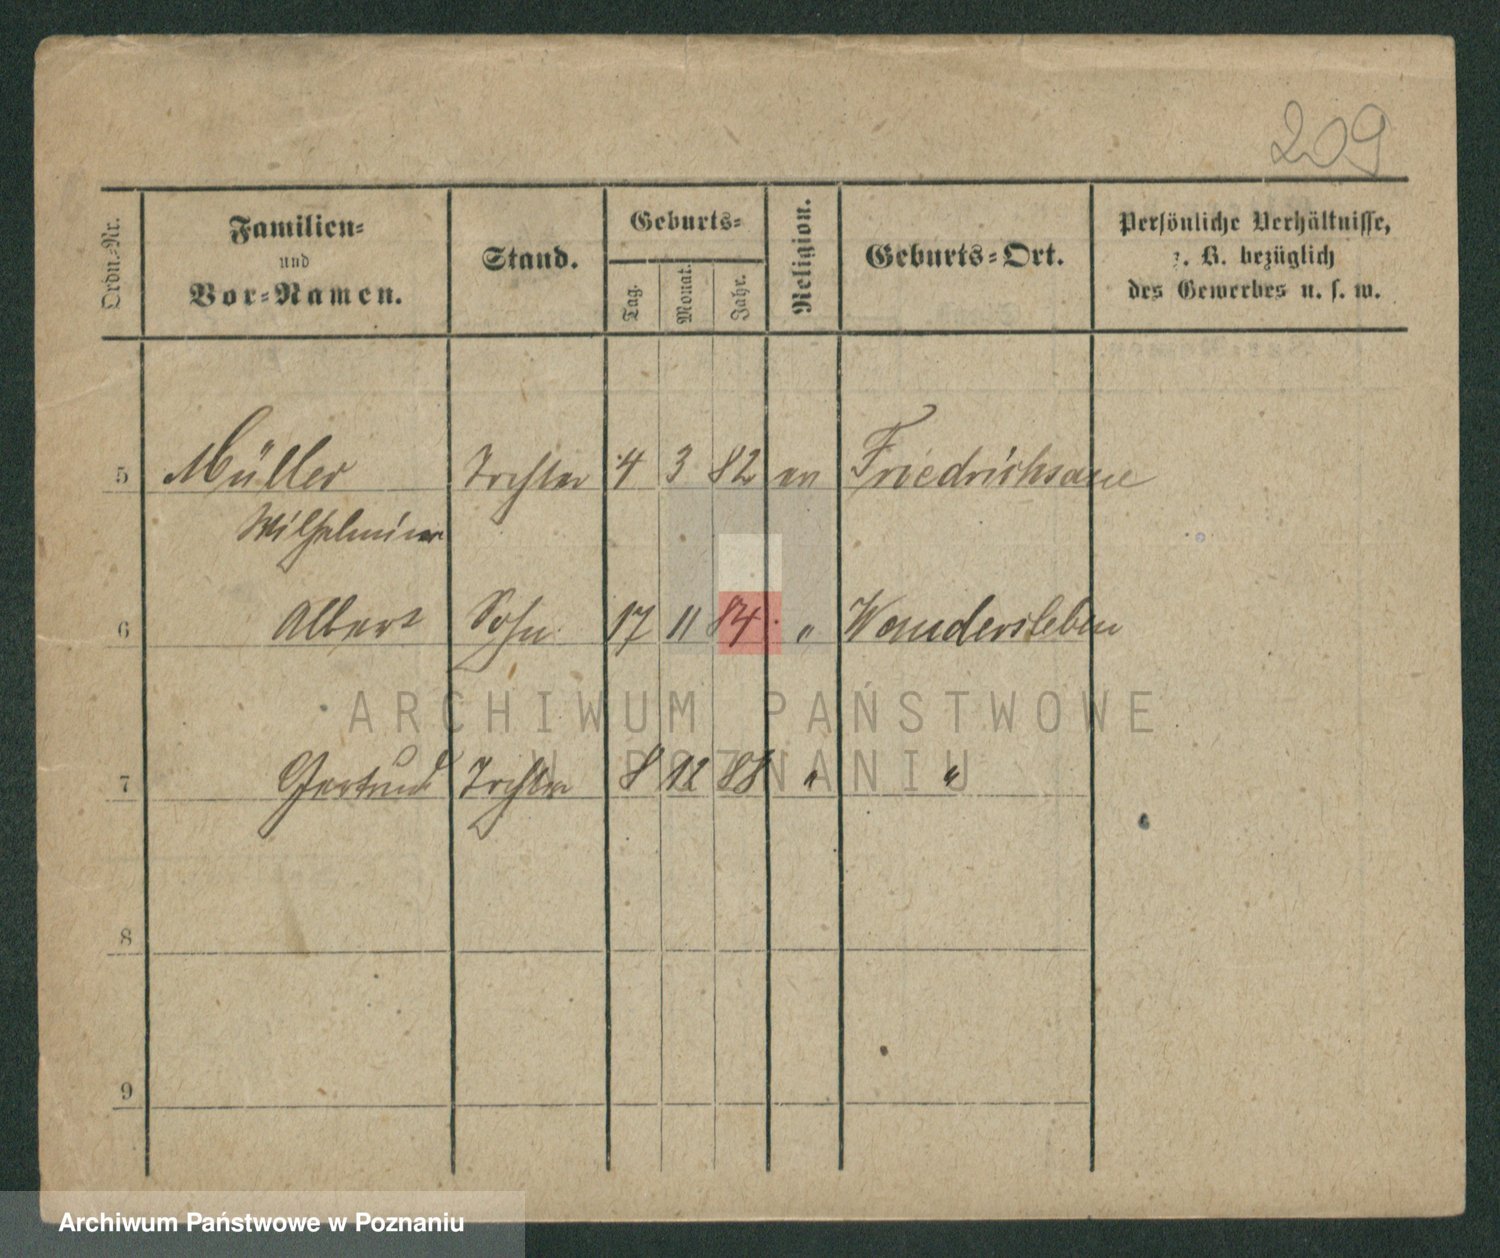 209
Ordn.-Nr.
Familien-
und
Vor-Namen.
Stand.
Geburts-
Tag.
Monat.
Jahr.
Religion.
Geburts-Ort.
Persönliche Verhältnisse,
z. B. bezüglich
des Gewerbes u. s. w.
5 Müller Tochter 4 3 82 ev Friedrichsaue
Wilhelmine
6 Albert Sohn 17 11 84 " Wandersleben
ARCHIWUM PAŃSTWOWE
W POZNANIU
7 Gertrud Tochter 8 12 88 " "
8
9
Archiwum Państwowe w Poznaniu